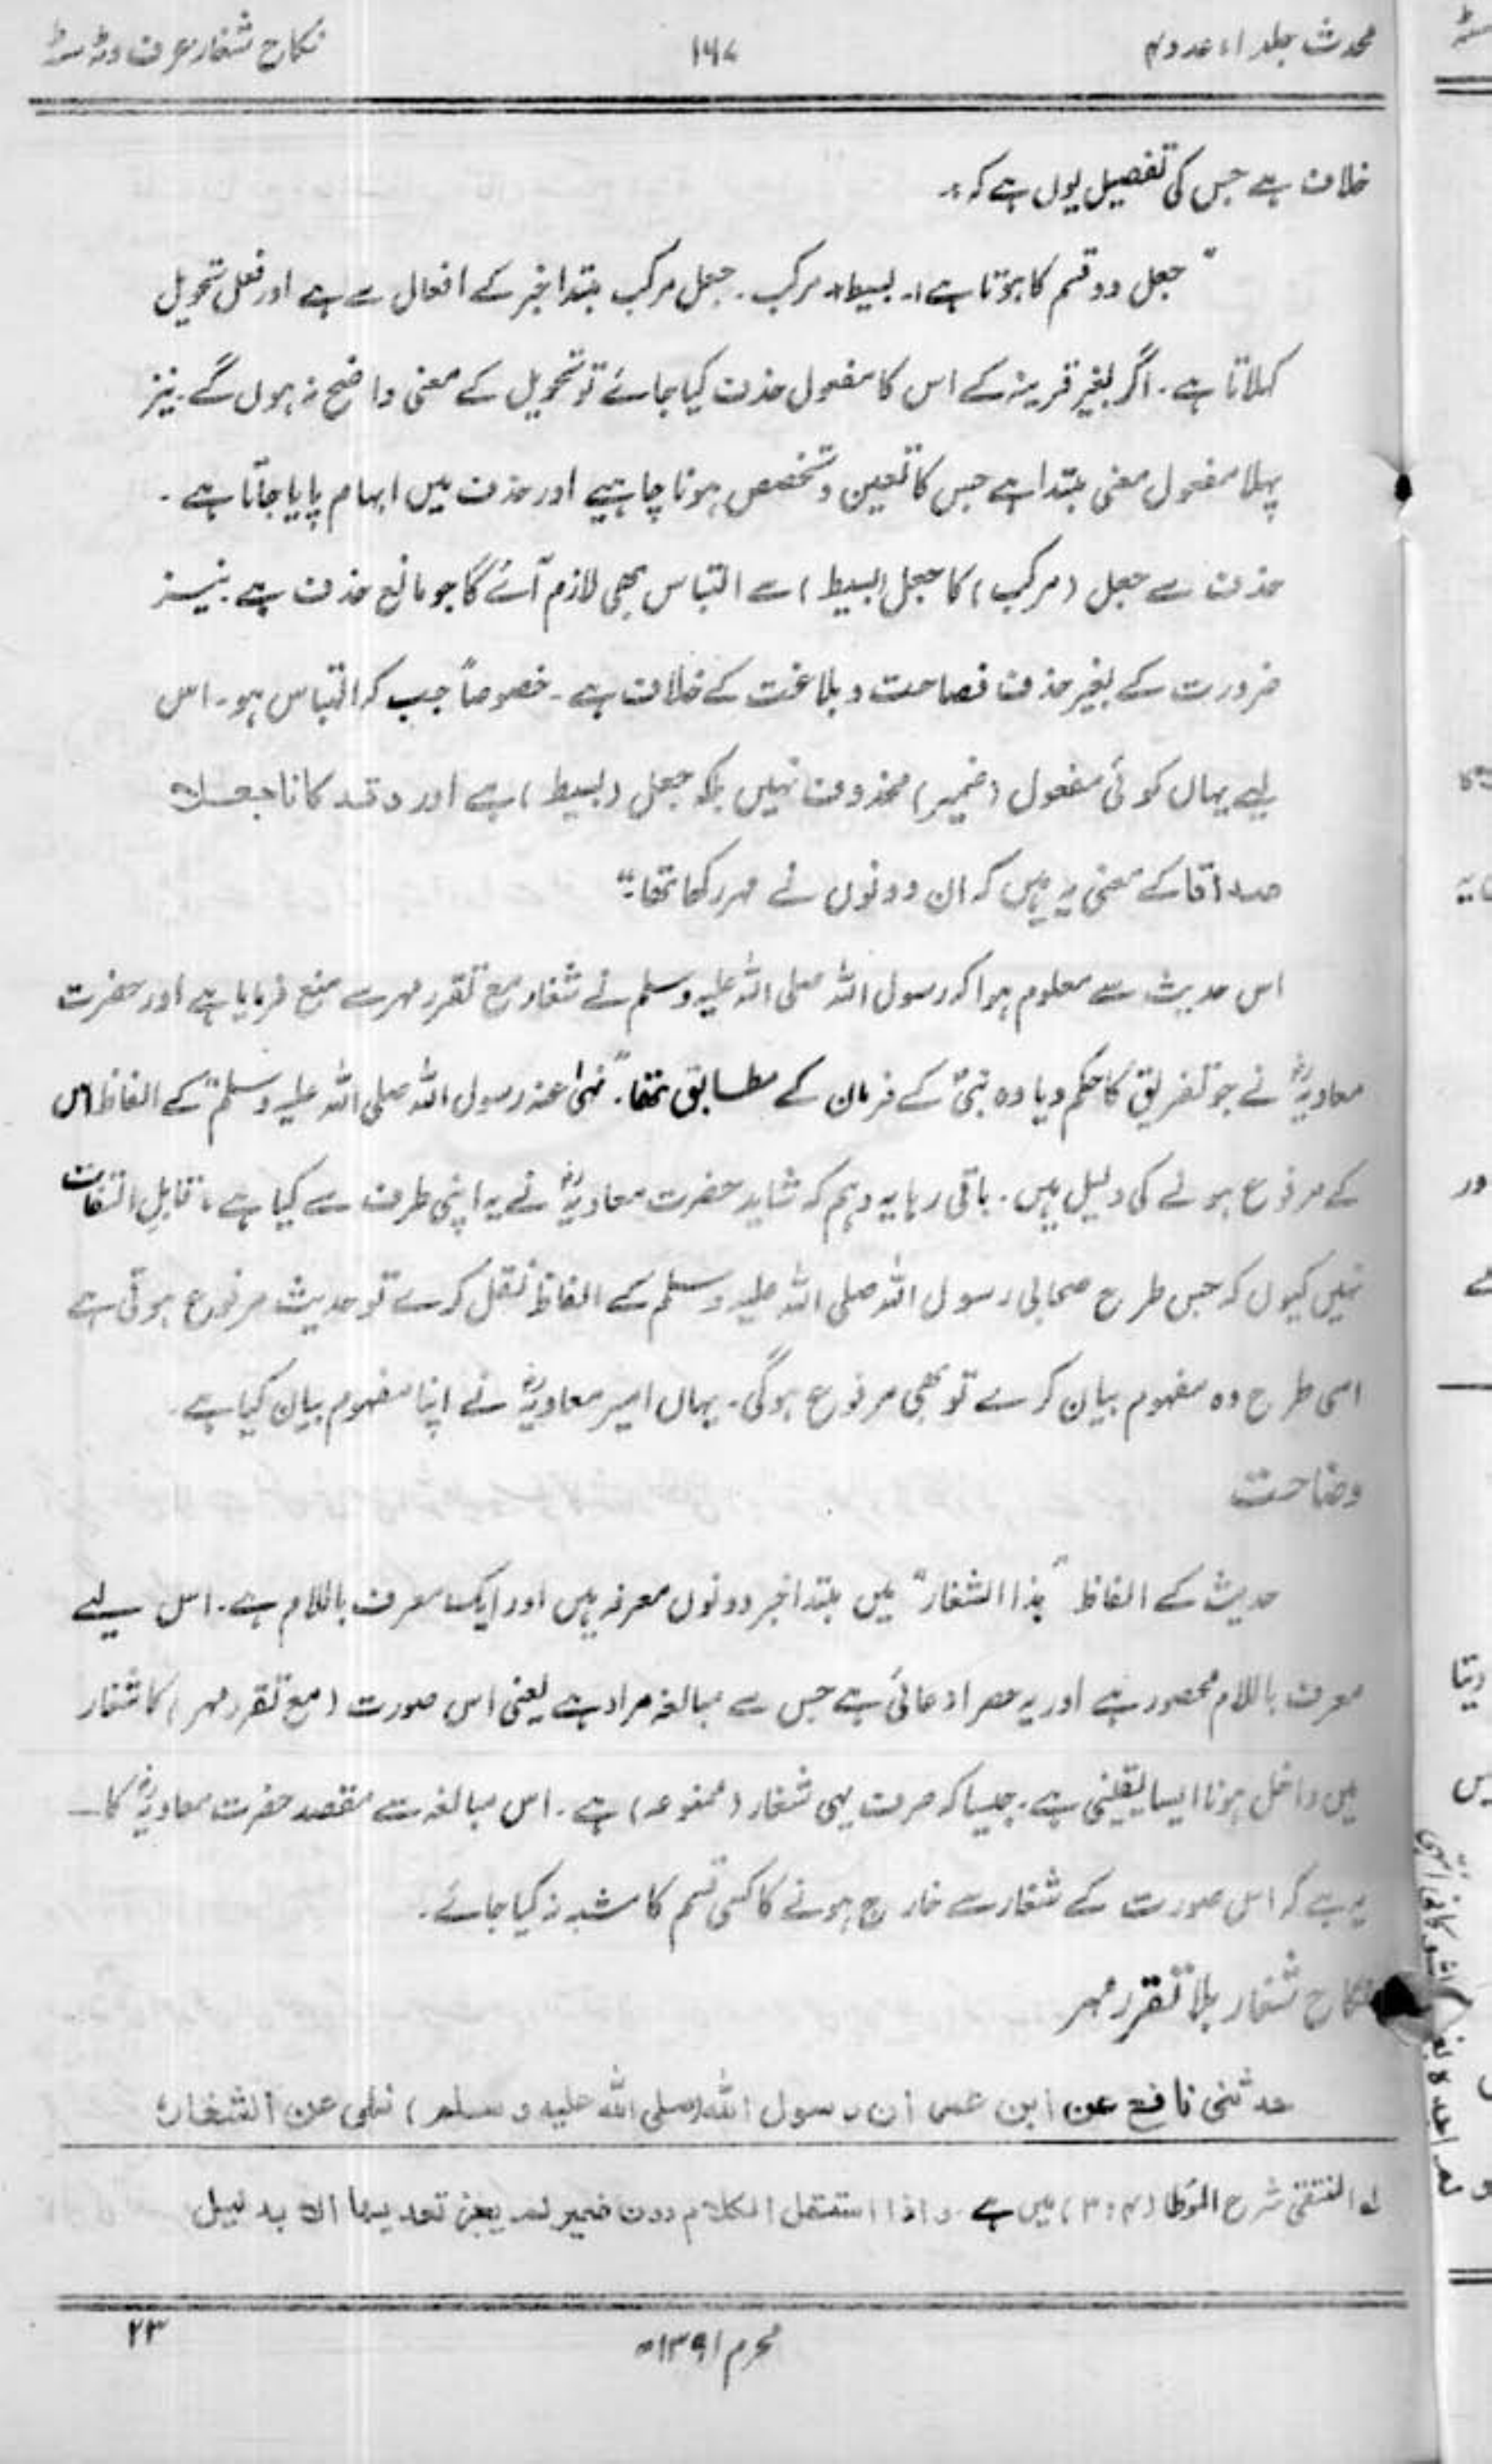 محدث جلد ۱، عدد ۲
۱۶۷
نکاح شغار عرف وٹہ سٹہ
خلاف ہے جس کی تفصیل یوں ہے کہ :۔
"جعل دو قسم کا ہوتا ہے ۱۔ بسیط ۲۔ مرکب ۔ جعل مرکب مبتدا خبر کے افعال سے ہے اور فعل تحویل
کہلاتا ہے ۔ اگر بغیر قرینہ کے اس کا مفعول حذف کیا جائے تو تحویل کے معنی واضح نہ ہوں گے ۔ نیز
پہلا مفعول معنی مبتدا ہے جس کا تعین و تخصص ہونا چاہیے اور حذف میں ابہام پایا جاتا ہے ۔
حذف سے جعل (مرکب) کا جعل (بسیط) سے التباس بھی لازم آئے گا جو مانع حذف ہے ۔ نیز
ضرورت کے بغیر حذف فصاحت و بلاغت کے خلاف ہے ۔ خصوصاً جب کہ التباس ہو ۔ اس
لیے یہاں کوئی مفعول (ضمیر) محذوف نہیں بلکہ جعل (بسیط) ہے اور وقد کانا جعلا
صداقا کے معنی یہ ہیں کہ ان دونوں نے مہر رکھا تھا"
اس حدیث سے معلوم ہوا کہ رسول اللہ صلی اللہ علیہ وسلم نے شغار مع تقرر مہر سے منع فرمایا ہے اور حضرت
معاویہؓ نے جو تفریق کا حکم دیا وہ نبیؐ کے فرمان کے مطابق تھا ۔ "نہیٰ عنہ رسول اللہ صلی اللہ علیہ وسلم" کے الفاظ اس
کے مرفوع ہونے کی دلیل ہیں ۔ باقی رہا یہ وہم کہ شاید حضرت معاویہؓ نے یہ اپنی طرف سے کیا ہے ، قابل التفات
نہیں کیوں کہ جس طرح صحابی رسول اللہ صلی اللہ علیہ وسلم کے الفاظ نقل کرے تو حدیث مرفوع ہوتی ہے
اسی طرح وہ مفہوم بیان کرے تو بھی مرفوع ہوگی ۔ یہاں امیر معاویہؓ نے اپنا مفہوم بیان کیا ہے ۔
وضاحت
حدیث کے الفاظ "ہذا الشغار" میں مبتدا خبر دونوں معرفہ ہیں اور ایک معرف باللام ہے ۔ اس لیے
معرف باللام محصور ہے اور یہ حصر ادعائی ہے جس سے مبالغہ مراد ہے یعنی اس صورت (مع تقرر مہر) کا شغار
میں داخل ہونا ایسا یقینی ہے ۔ جیسا کہ صرف یہی شغار (ممنوعہ) ہے ۔ اس مبالغہ سے مقصد حضرت معاویہؓ کا ــ
یہ ہے کہ اس صورت کے شغار سے خارج ہونے کا کسی قسم کا شبہ نہ کیا جائے ۔
نکاح شغار بلا تقرر مہر
حدثنی نافع عن ابن عمر ان رسول اللہ (صلی اللہ علیہ وسلم) نہی عن الشغار
لہ المنتقیٰ شرح المؤطا (۳:۴) میں ہے ۔ واذا استقل الکلام دون ضمیر لم یجز تعدیہا الا بدلیل
محرم ۱۳۹۱ھ
۲۳